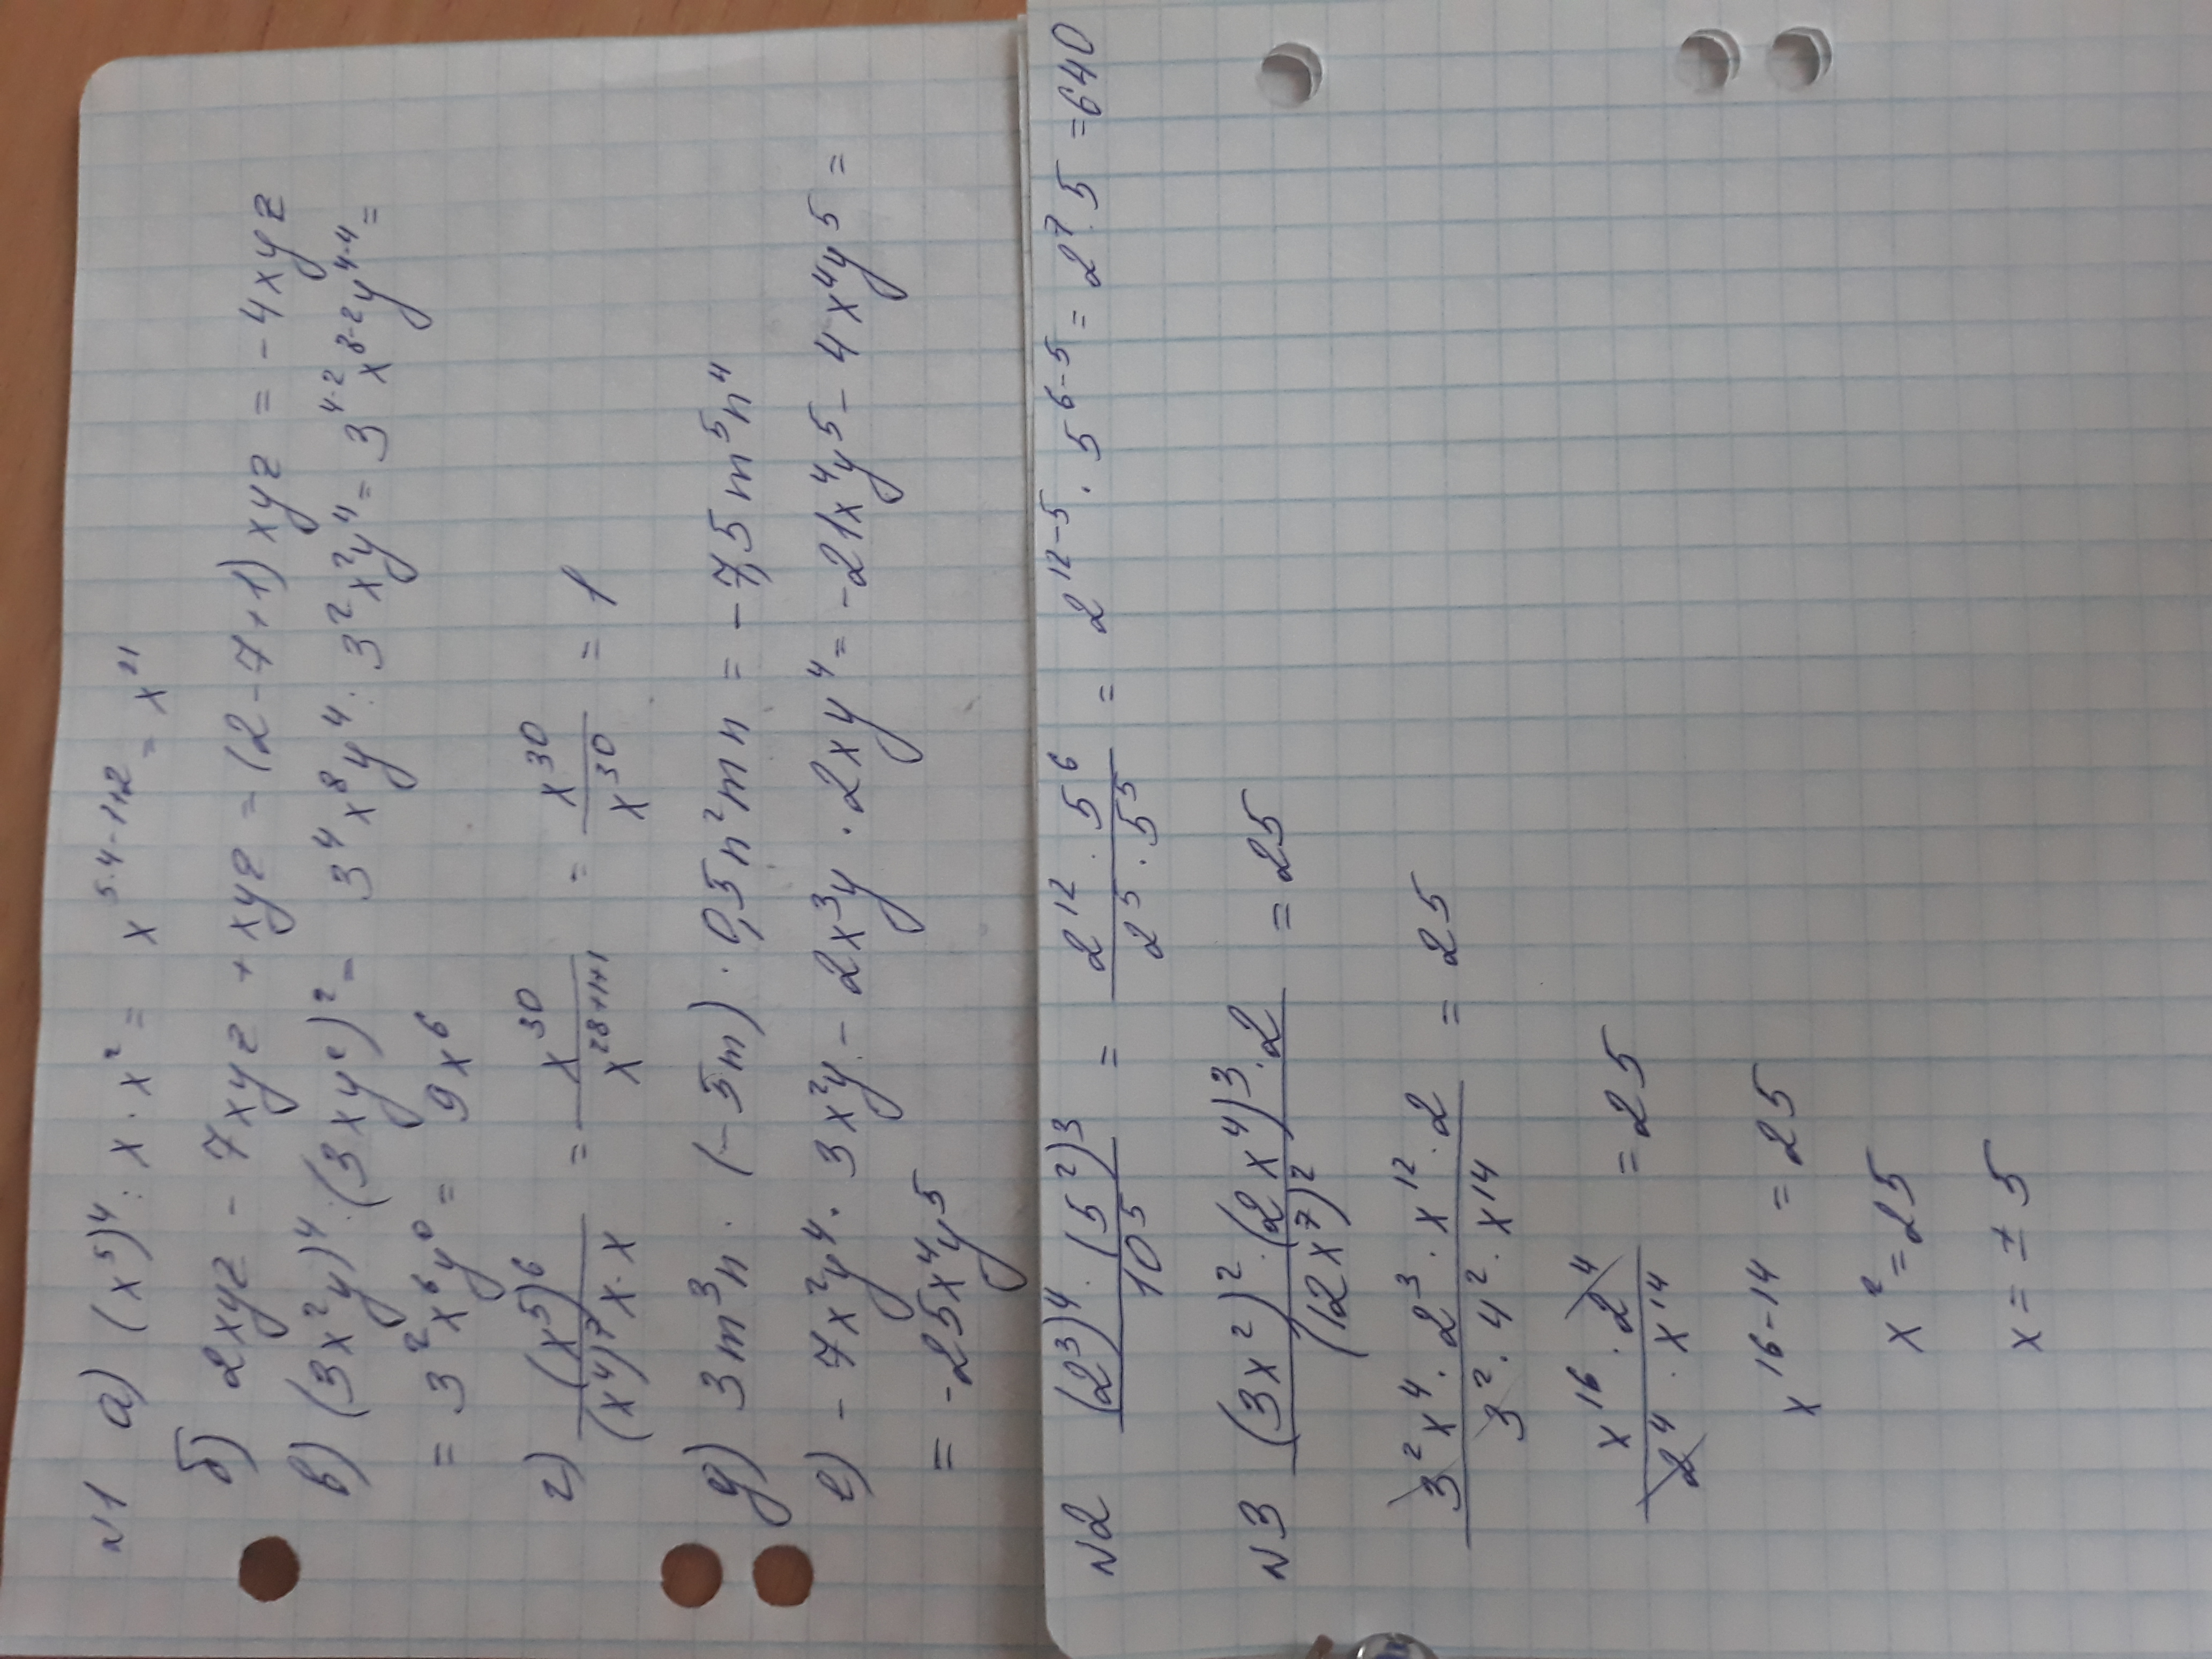 №1 а) (x⁵)⁴ : x · x² = x⁵·⁴⁻¹⁺² = x²¹
б) 2xyz - 7xyz + xyz = (2-7+1) xyz = -4xyz
в) (3x²y)⁴ : (3xy²)² = 3⁴x⁸y⁴ : 3²x²y⁴ = 3⁴⁻²x⁸⁻²y⁴⁻⁴ =
= 3²x⁶y⁰ = 9x⁶
г) (x⁵)⁶ / (x⁴)⁷x·x = x³⁰ / x²⁸⁺¹⁺¹ = x³⁰ / x³⁰ = 1
д) 3m³n · (-5m) · 0,5n²mn = -7,5m⁵n⁴
е) -7x²y⁴ · 3x²y - 2x³y · 2xy⁴ = -21x⁴y⁵ - 4x⁴y⁵ =
= -25x⁴y⁵
№2 (2³)⁴ · (5²)³ / 10⁵ = 2¹² · 5⁶ / 2⁵ · 5⁵ = 2¹²⁻⁵ · 5⁶⁻⁵ = 2⁷ · 5 = 640
№3 (3x²)² · (2x⁴)³ · 2 / (12x⁷)² = 25
3²x⁴ · 2³ · x¹² · 2 / 3² · 4² · x¹⁴ = 25
x¹⁶ · 2⁴ / 2⁴ · x¹⁴ = 25
x¹⁶⁻¹⁴ = 25
x² = 25
x = ± 5